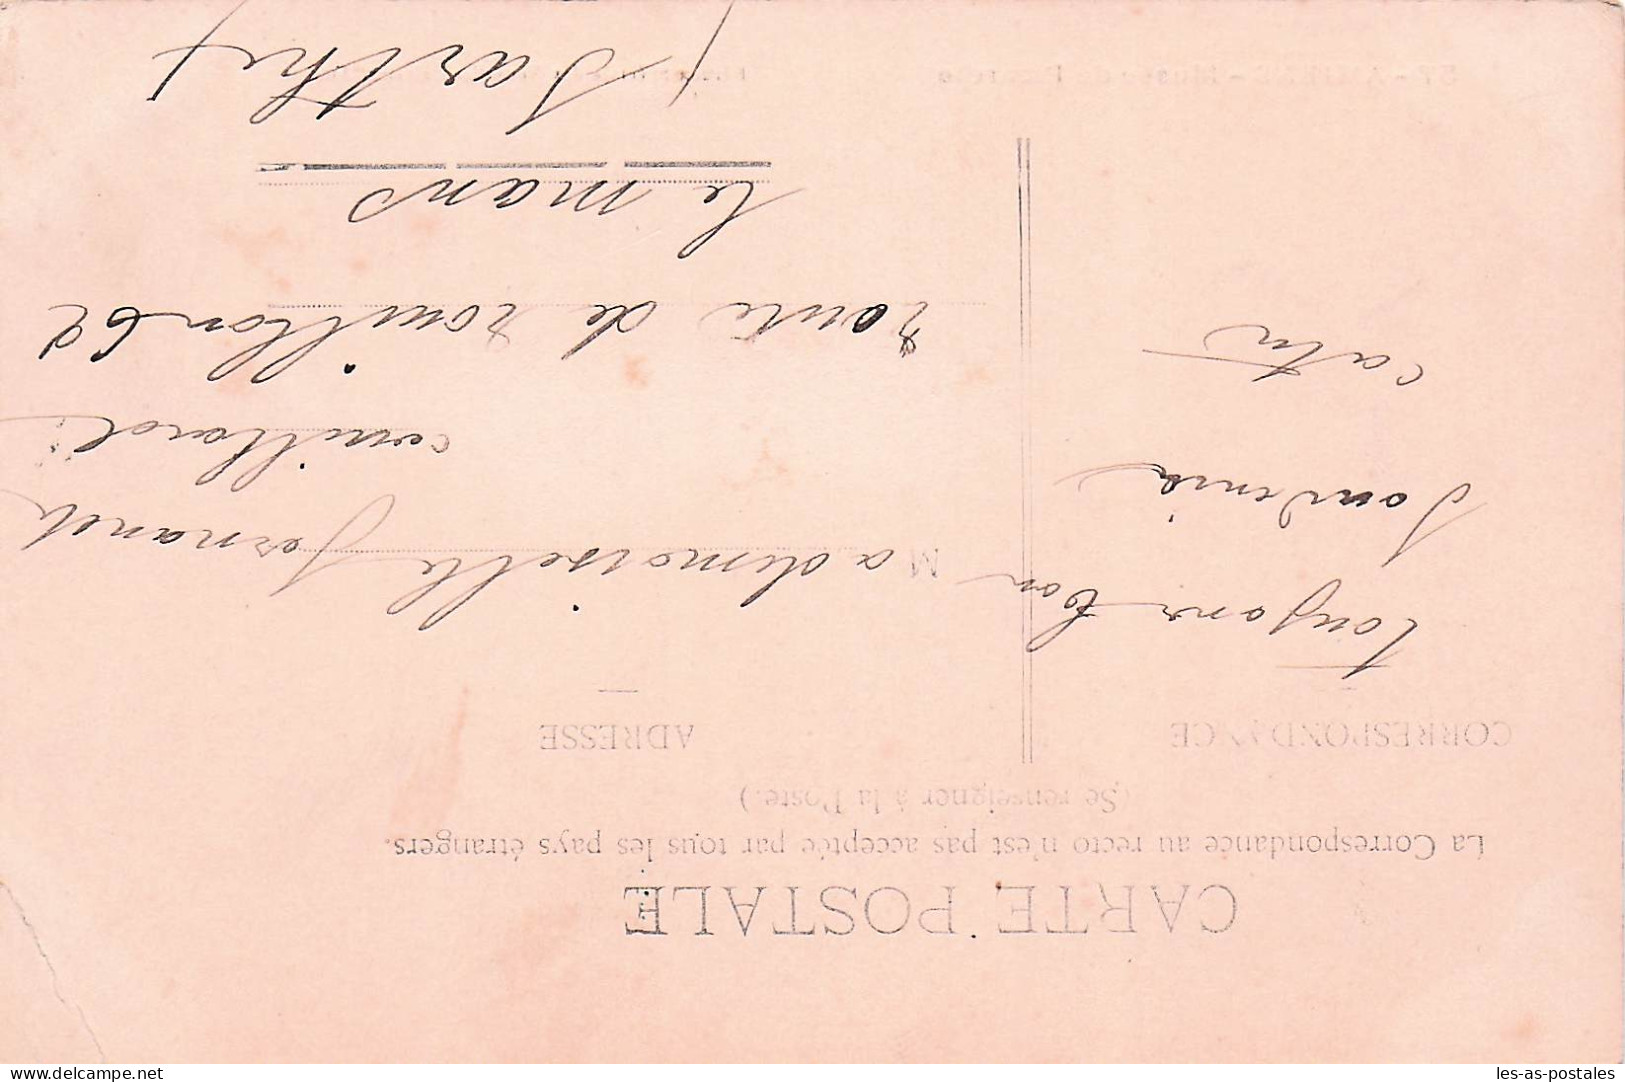 CARTE POSTALE
La Correspondance au recto n'est pas acceptée par tous les pays étrangers.
(Se renseigner à la Poste.)
CORRESPONDANCE
ADRESSE
toujour bon
Souvenir
Mademoiselle fernande
couillard
route de rouillon 62
le mans
Sarthe
delcampe.net
les-as-postales